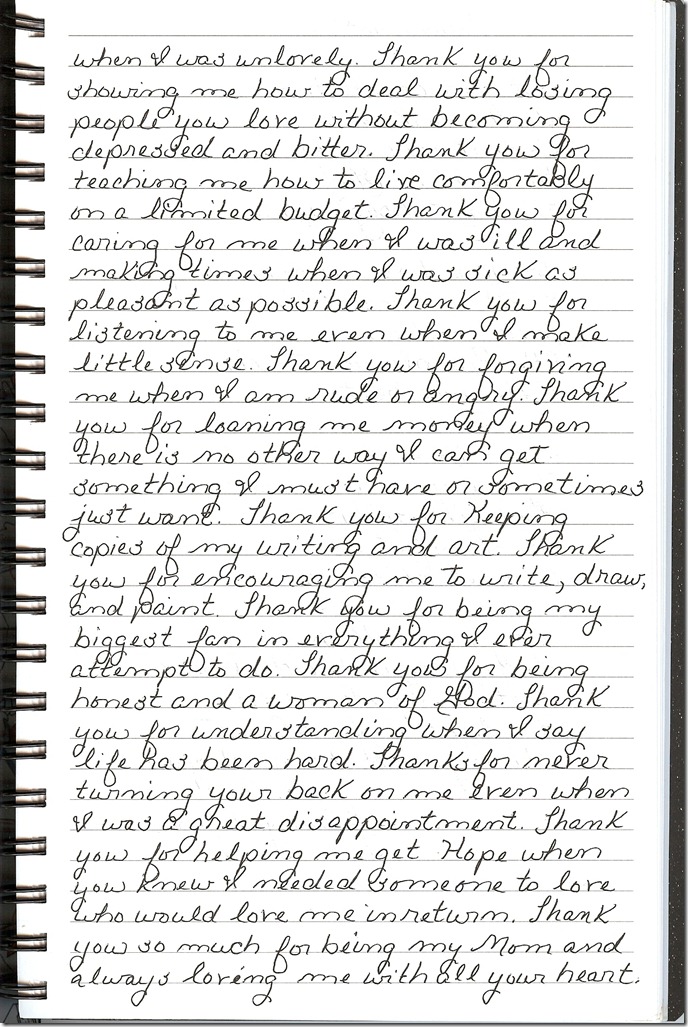 when I was unlovely. Thank you for
showing me how to deal with losing
people you love without becoming
depressed and bitter. Thank you for
teaching me how to live comfortably
on a limited budget. Thank you for
caring for me when I was ill and
making times when I was sick as
pleasant as possible. Thank you for
listening to me even when I make
little sense. Thank you for forgiving
me when I am rude or angry. Thank
you for loaning me money when
there is no other way I can get
something I must have or sometimes
just want. Thank you for Keeping
copies of my writing and art. Thank
you for encouraging me to write, draw,
and paint. Thank you for being my
biggest fan in everything I ever
attempt to do. Thank you for being
honest and a woman of God. Thank
you for understanding when I say
life has been hard. Thanks for never
turning your back on me even when
I was a great disappointment. Thank
you for helping me get Hope when
you knew I needed someone to love
who would love me in return. Thank
you so much for being my Mom and
always loving me with all your heart.